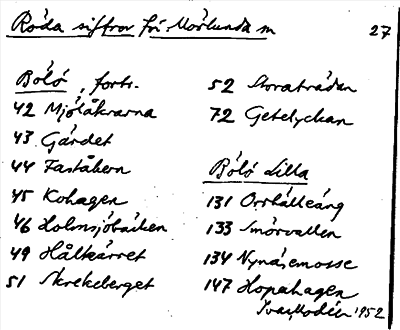 Röda siffror frå Mörlunda m
27
Bölö, forts.
42 Mjölåkrarna
43 Gärdet
44 Faståkern
45 Kohagen
46 Holmsjöbäcken
49 Hålkärret
51 Skrekeberget
52 Storaträdan
72 Getelyckan
Bölö Lilla
131 Orrhälleäng
133 Smörvallen
134 Nynäsemosse
147 Hopahagen
Ivar Modéer 1952